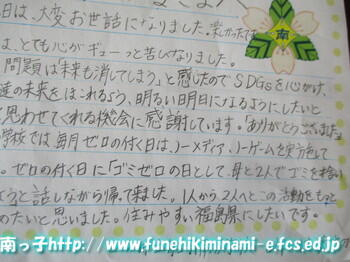 日は、大変お世話になりました。楽しかったです
は、とても心がギューっと苦しくなりました。
南
問題は「未来も消してしまう」と感じたのでSDGsを心がけ、
達の未来をほこれるよう、明るい明日になるようにしたいと
思わせてくれる機会に感謝しています。「ありがとうございました」
学校では毎月ゼロの付く日は、ノーメディア、ノーゲームを実方色して
。ゼロの付く日に「ゴミゼロの日として、母と2人でゴミを拾い
ようと話しながら帰って来ました。1人から2人へとこの活動をもっと
めたいと思いました。住みやすい福島県にしたいです。
南っ子http://www.funehikiminami-e.fcs.ed.jp